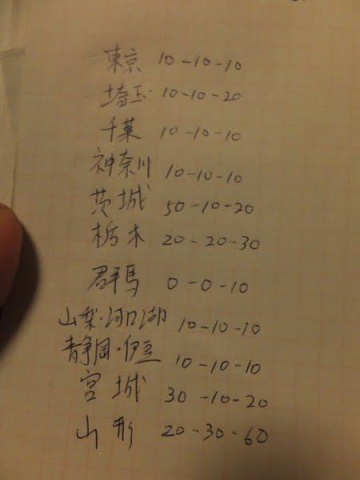 東京 10-10-10
埼玉 10-10-20
千葉 10-10-10
神奈川 10-10-10
茨城 50-10-20
栃木 20-20-30
群馬 0-0-10
山梨・河口湖 10-10-10
静岡・伊豆 10-10-10
宮城 30-10-20
山形 20-30-60